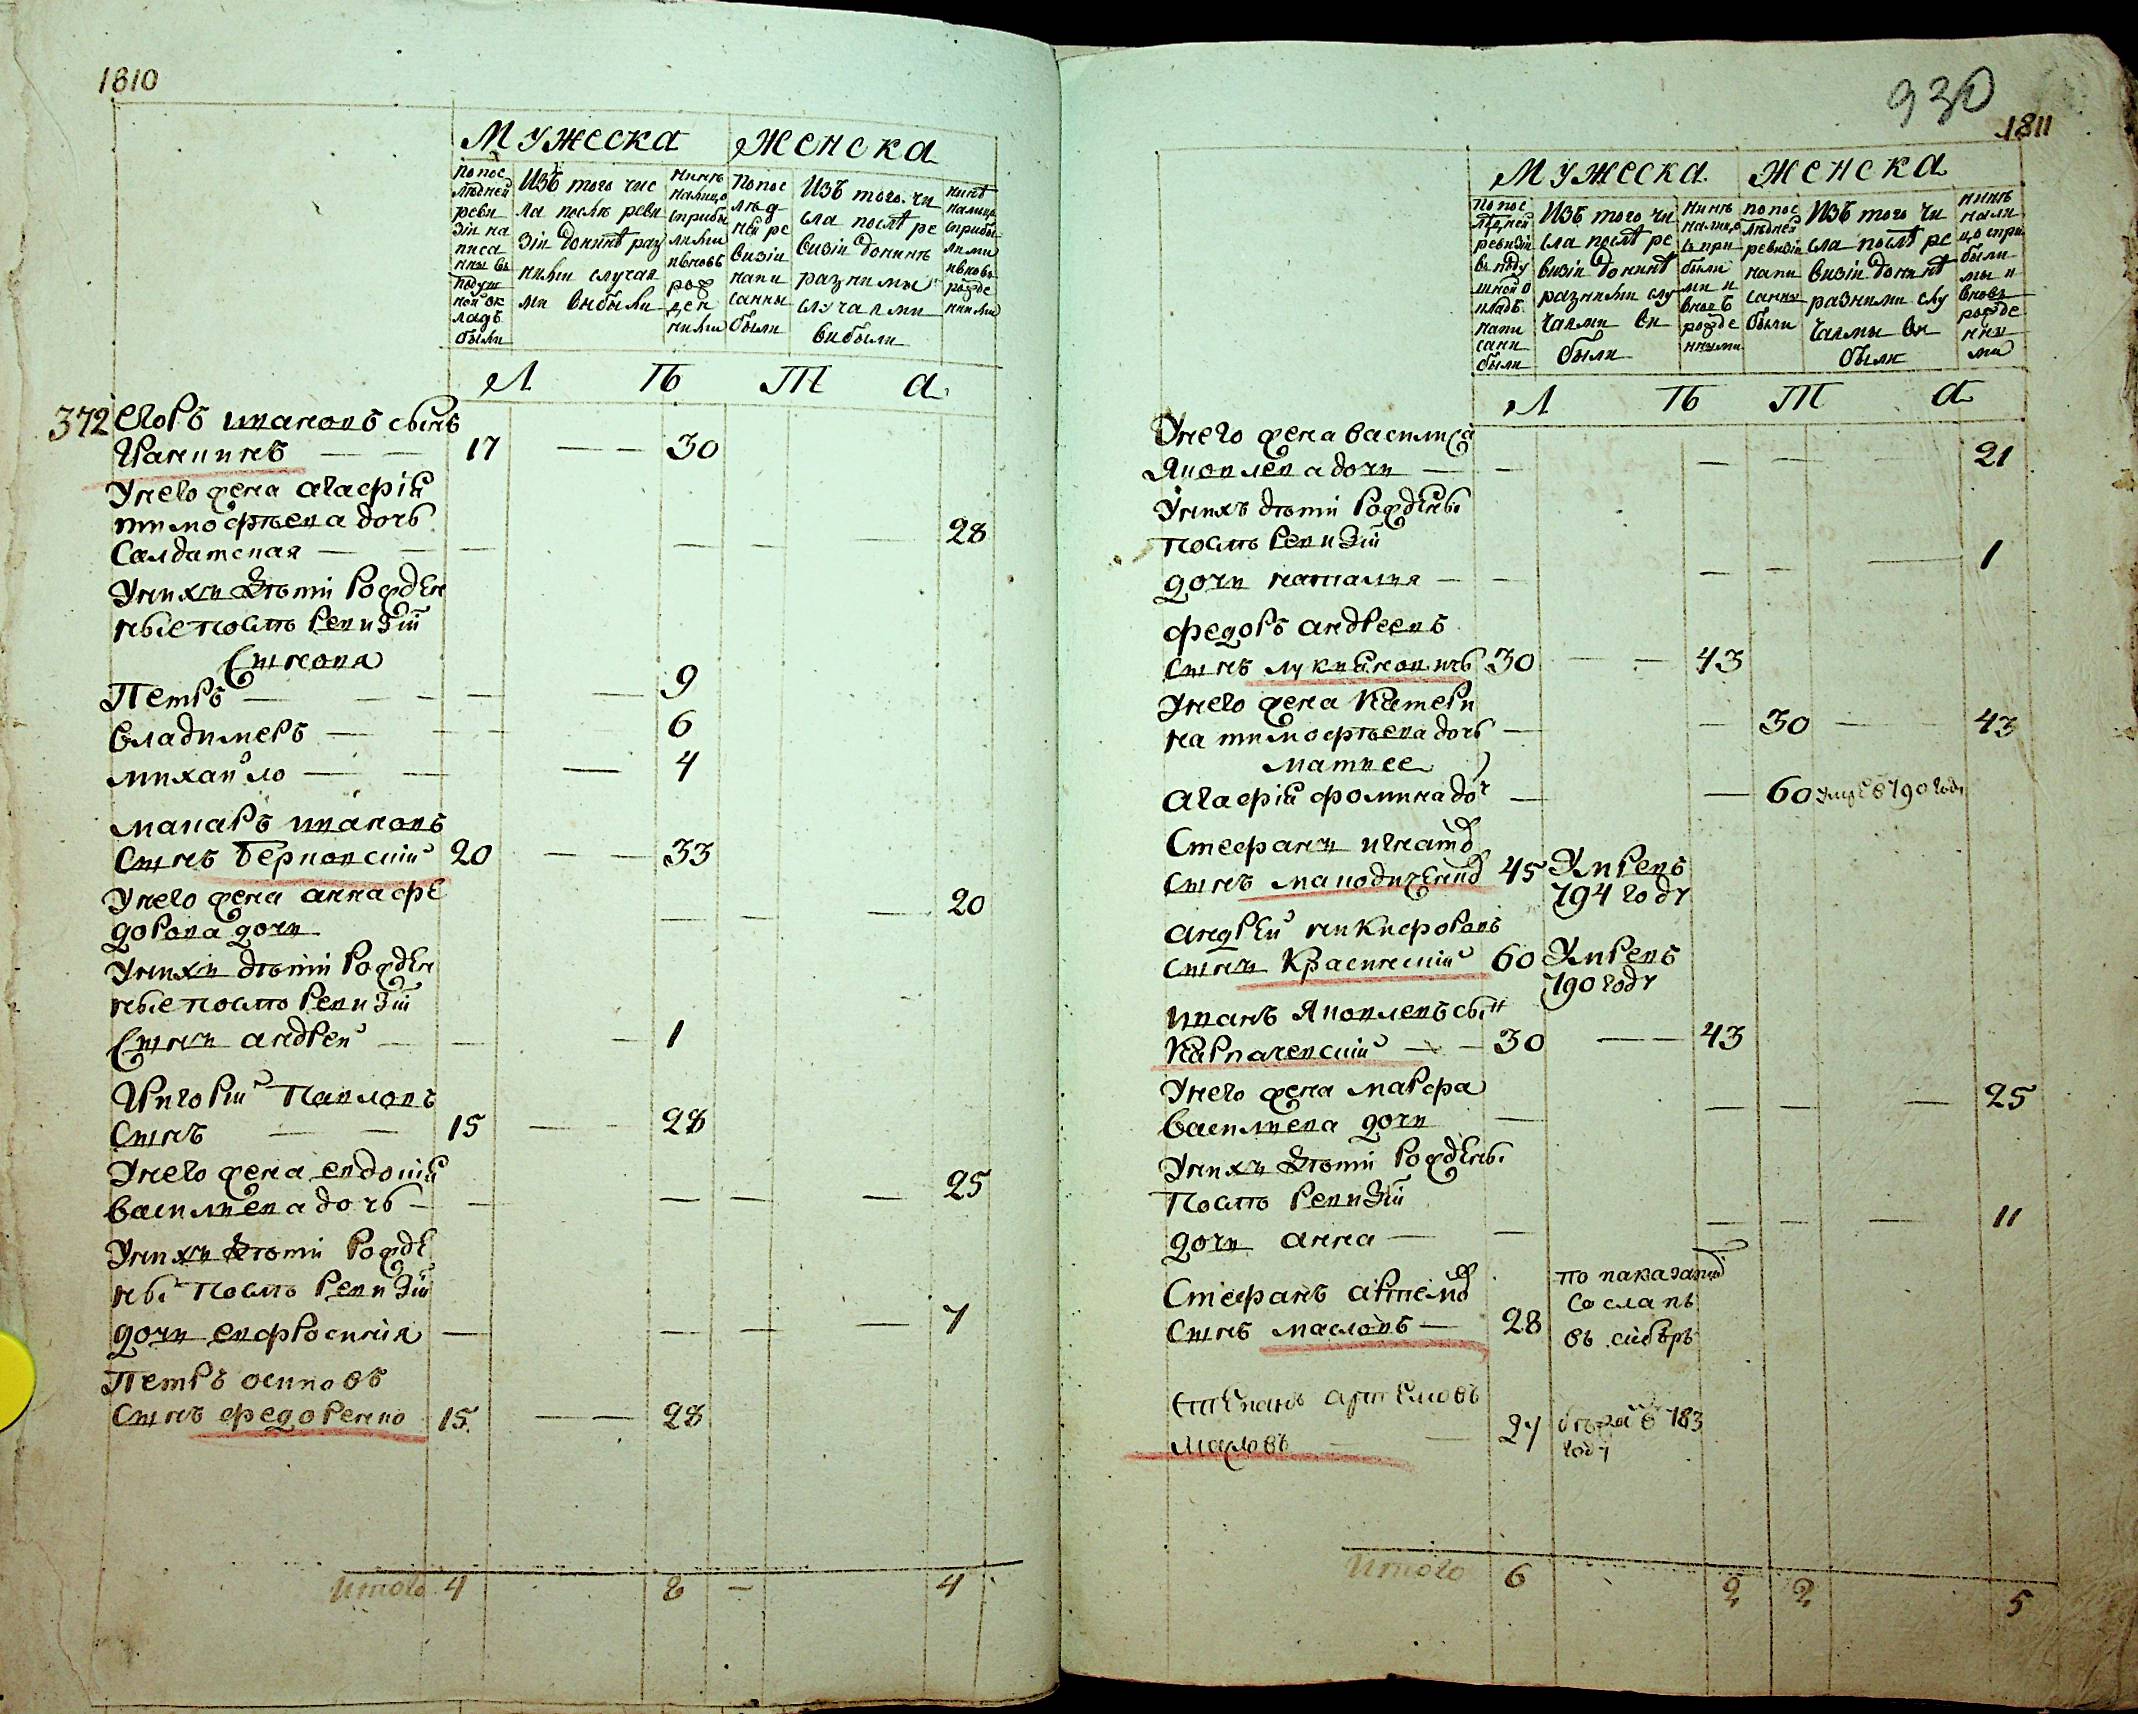 1810
Мужеска Женска
по пос
лѣдней
реви
зіи на
писа
ны въ
подуш
ной ок
ладѣ
были
Изъ того чис
ла послѣ реви
зіи донынѣ раз
ными случая
ми выбыли
нынѣ
налицо
сприбы
лыми
ивновь
рож
ден
ными
по пос
лѣд
ней ре
визіи
напи
санны
были
Изъ того чи
сла послѣ ре
визіи донынѣ
разными
случаями
выбыли
нынѣ
налицо
сприбы
лыми
ивновь
рожде
нними
Л Ѣ Т а
372 Егоръ ивановъ сынъ
Гранинъ — — 17 — — 30
Унего жена агафія
тимофѣева дочь
Салдатская — — — — — — 28
Унихъ дѣти рожден
ные послѣ ревизіи
Сыновя
Петръ — — — — — 9
владимеръ — — — 6
михайло — — — 4
макаръ ивановъ
Сынъ Берновскій 20 — — 33
Унего жена анна фе
дорова дочи — — — 20
Унихъ дѣти рожден
ные послѣ ревизіи
Сынъ андрей — — — 1
Григорій Павловъ
Сынъ — — 15 — — 28
Унего жена евдокія
василиева дочь — — — — — 25
Унихъ дѣти рожде
ны послѣ ревизіи
дочи евфросиния — — — — 7
Петръ осиповъ
Сынъ федоренко 15 — — 28
итого 4 8 — 4
930
1811
Мужеска Женска
по пос
лѣдней
ревизіи
въ поду
шной о
кладѣ
напи
сани
были
Изъ того чи
сла послѣ ре
визіи донынѣ
разними слу
чаями вы
были
нынѣ
налицо
спри
были
ми и
вновь
рожде
нными
по пос
лѣдней
ревизіи
напи
санны
были
Изъ того чи
сла послѣ ре
визіи донынѣ
разними слу
чаямы вы
были
нынѣ
нали
цо спри
были
мы и
вновь
рожде
нны
ми
Л Ѣ Т а
Унего жена василиса
Яковлева дочи — — — — — 21
Унихъ дѣти рождены
послѣ ревизіи
дочи наталия — — — — — 1
федоръ андреевъ
Сынъ лукяновичь 30 — — 43
Унего жена Катери
на тимофѣева дочь — — 30 — — 43
матысе
агафія фомина доч — — 60 умре в 790 году
Стефанъ игнатов
Сынъ 45 Умрепъ
794 году
андрей никифоровъ
Сынъ Краснскій 60 Умрепъ
790 году
иванъ яковлевъ сын
Карпачевскій — — 30 — — 43
Унего жена марфа
василиева дочи — — — — 25
Унихъ дѣти рождены
Послѣ ревизіи
дочи анна — — — — — 11
Стефанъ артемов
Сынъ масловъ — 28 по паказаніи
сосланъ
въ сибѣръ
Степанъ артемовъ
масловъ — — 27 бежа в 783
году
итого 6 2 2 5